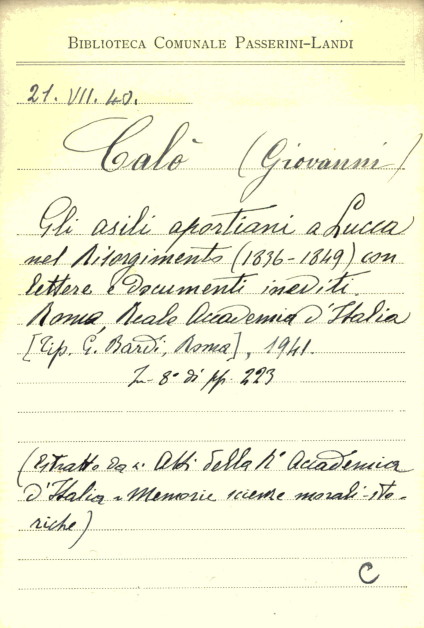 BIBLIOTECA COMUNALE PASSERINI-LANDI
21. VII. 40.
Calò (Giovanni)
Gli asili aportiani a Lucca
nel Risorgimento (1836-1849) con
lettere e documenti inediti.
Roma, Reale Accademia d'Italia
[Tip. G. Bardi, Roma], 1941.
In 8° di pp. 223
(Estratto da "Atti della R. Accademia
d'Italia" Memorie scienze morali-sto-
riche)
C